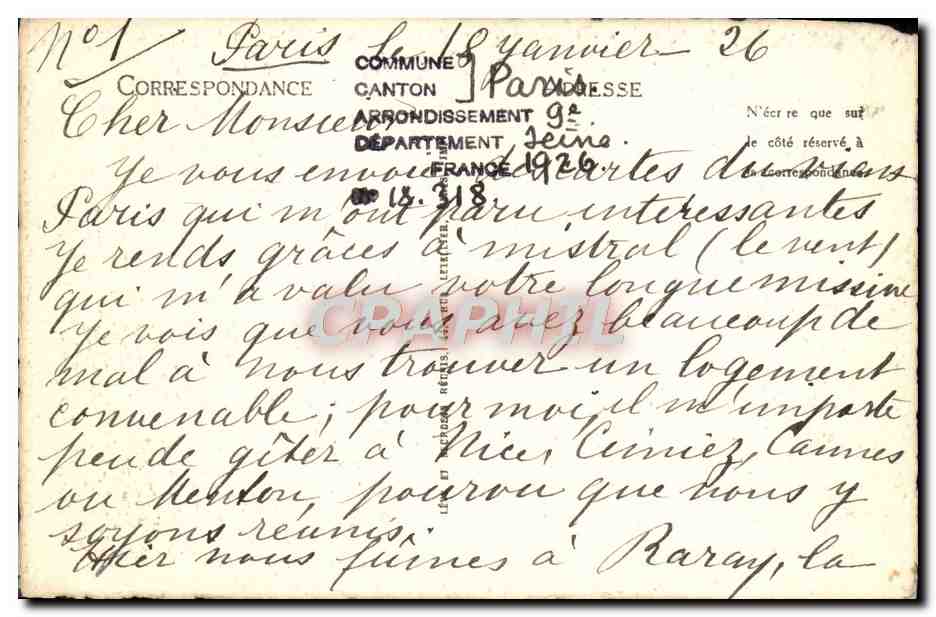 No 1 Paris le 18 Janvier 26
CORRESPONDANCE ADRESSE
COMMUNE
CANTON Paris.
ARRONDISSEMENT 9e
DÉPARTEMENT Seine.
FRANCE 1926
18.318
N'écrire que sur
le côté réservé à
la correspondance
Cher Monsieur
Je vous envoie cartes du vieux
Paris qui m'ont paru interessantes
Je rends grâces à mistral (le vent)
qui m'a valu votre longue missive
Je vois que vous avez beaucoup de
mal à nous trouver un logement
convenable; pour moi, il m'importe
peu de gîter à Nice, Cimiez, Cannes
ou Menton, pourvu que nous y
soyons réunis.
Hier nous fûmes à Raray, la
LÉVY ET NEURDEIN RÉUNIS, 44, RUE LETELLIER, PARIS
CPAPHIL